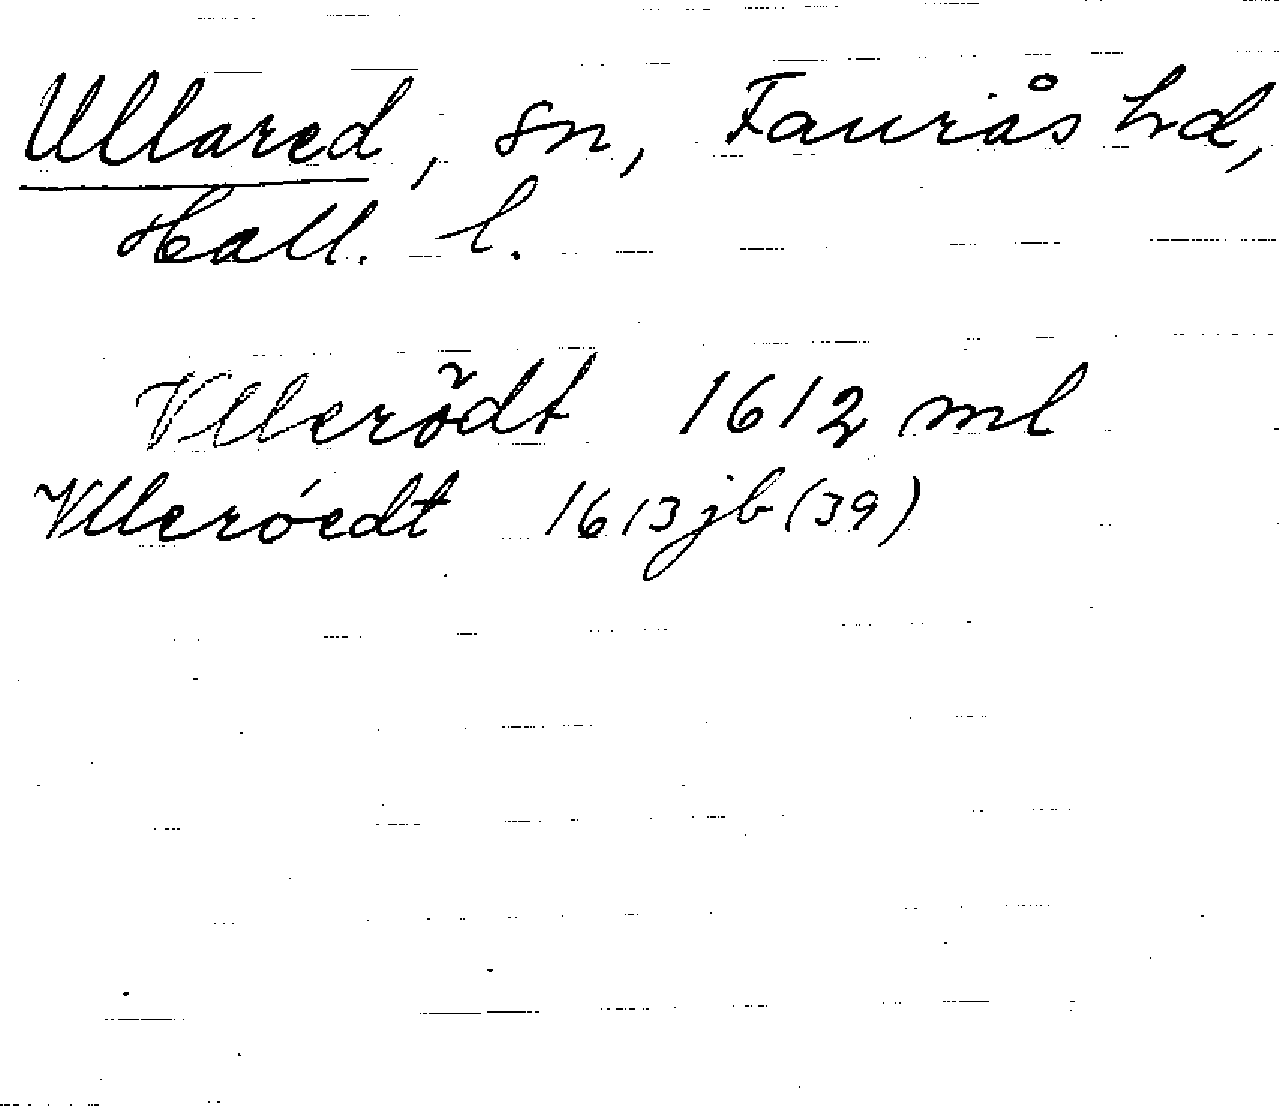 Ullared, sn, Faurås hd,
Hall. l.
Vllerõdt 1612 ml
Vlleróedt 1613 jb (39)